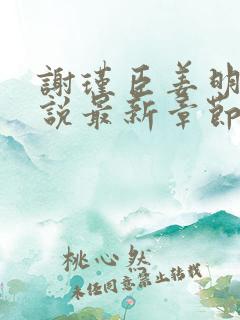 謝瑾臣姜明
說最新章節
桃心然
未經同意禁止轉載